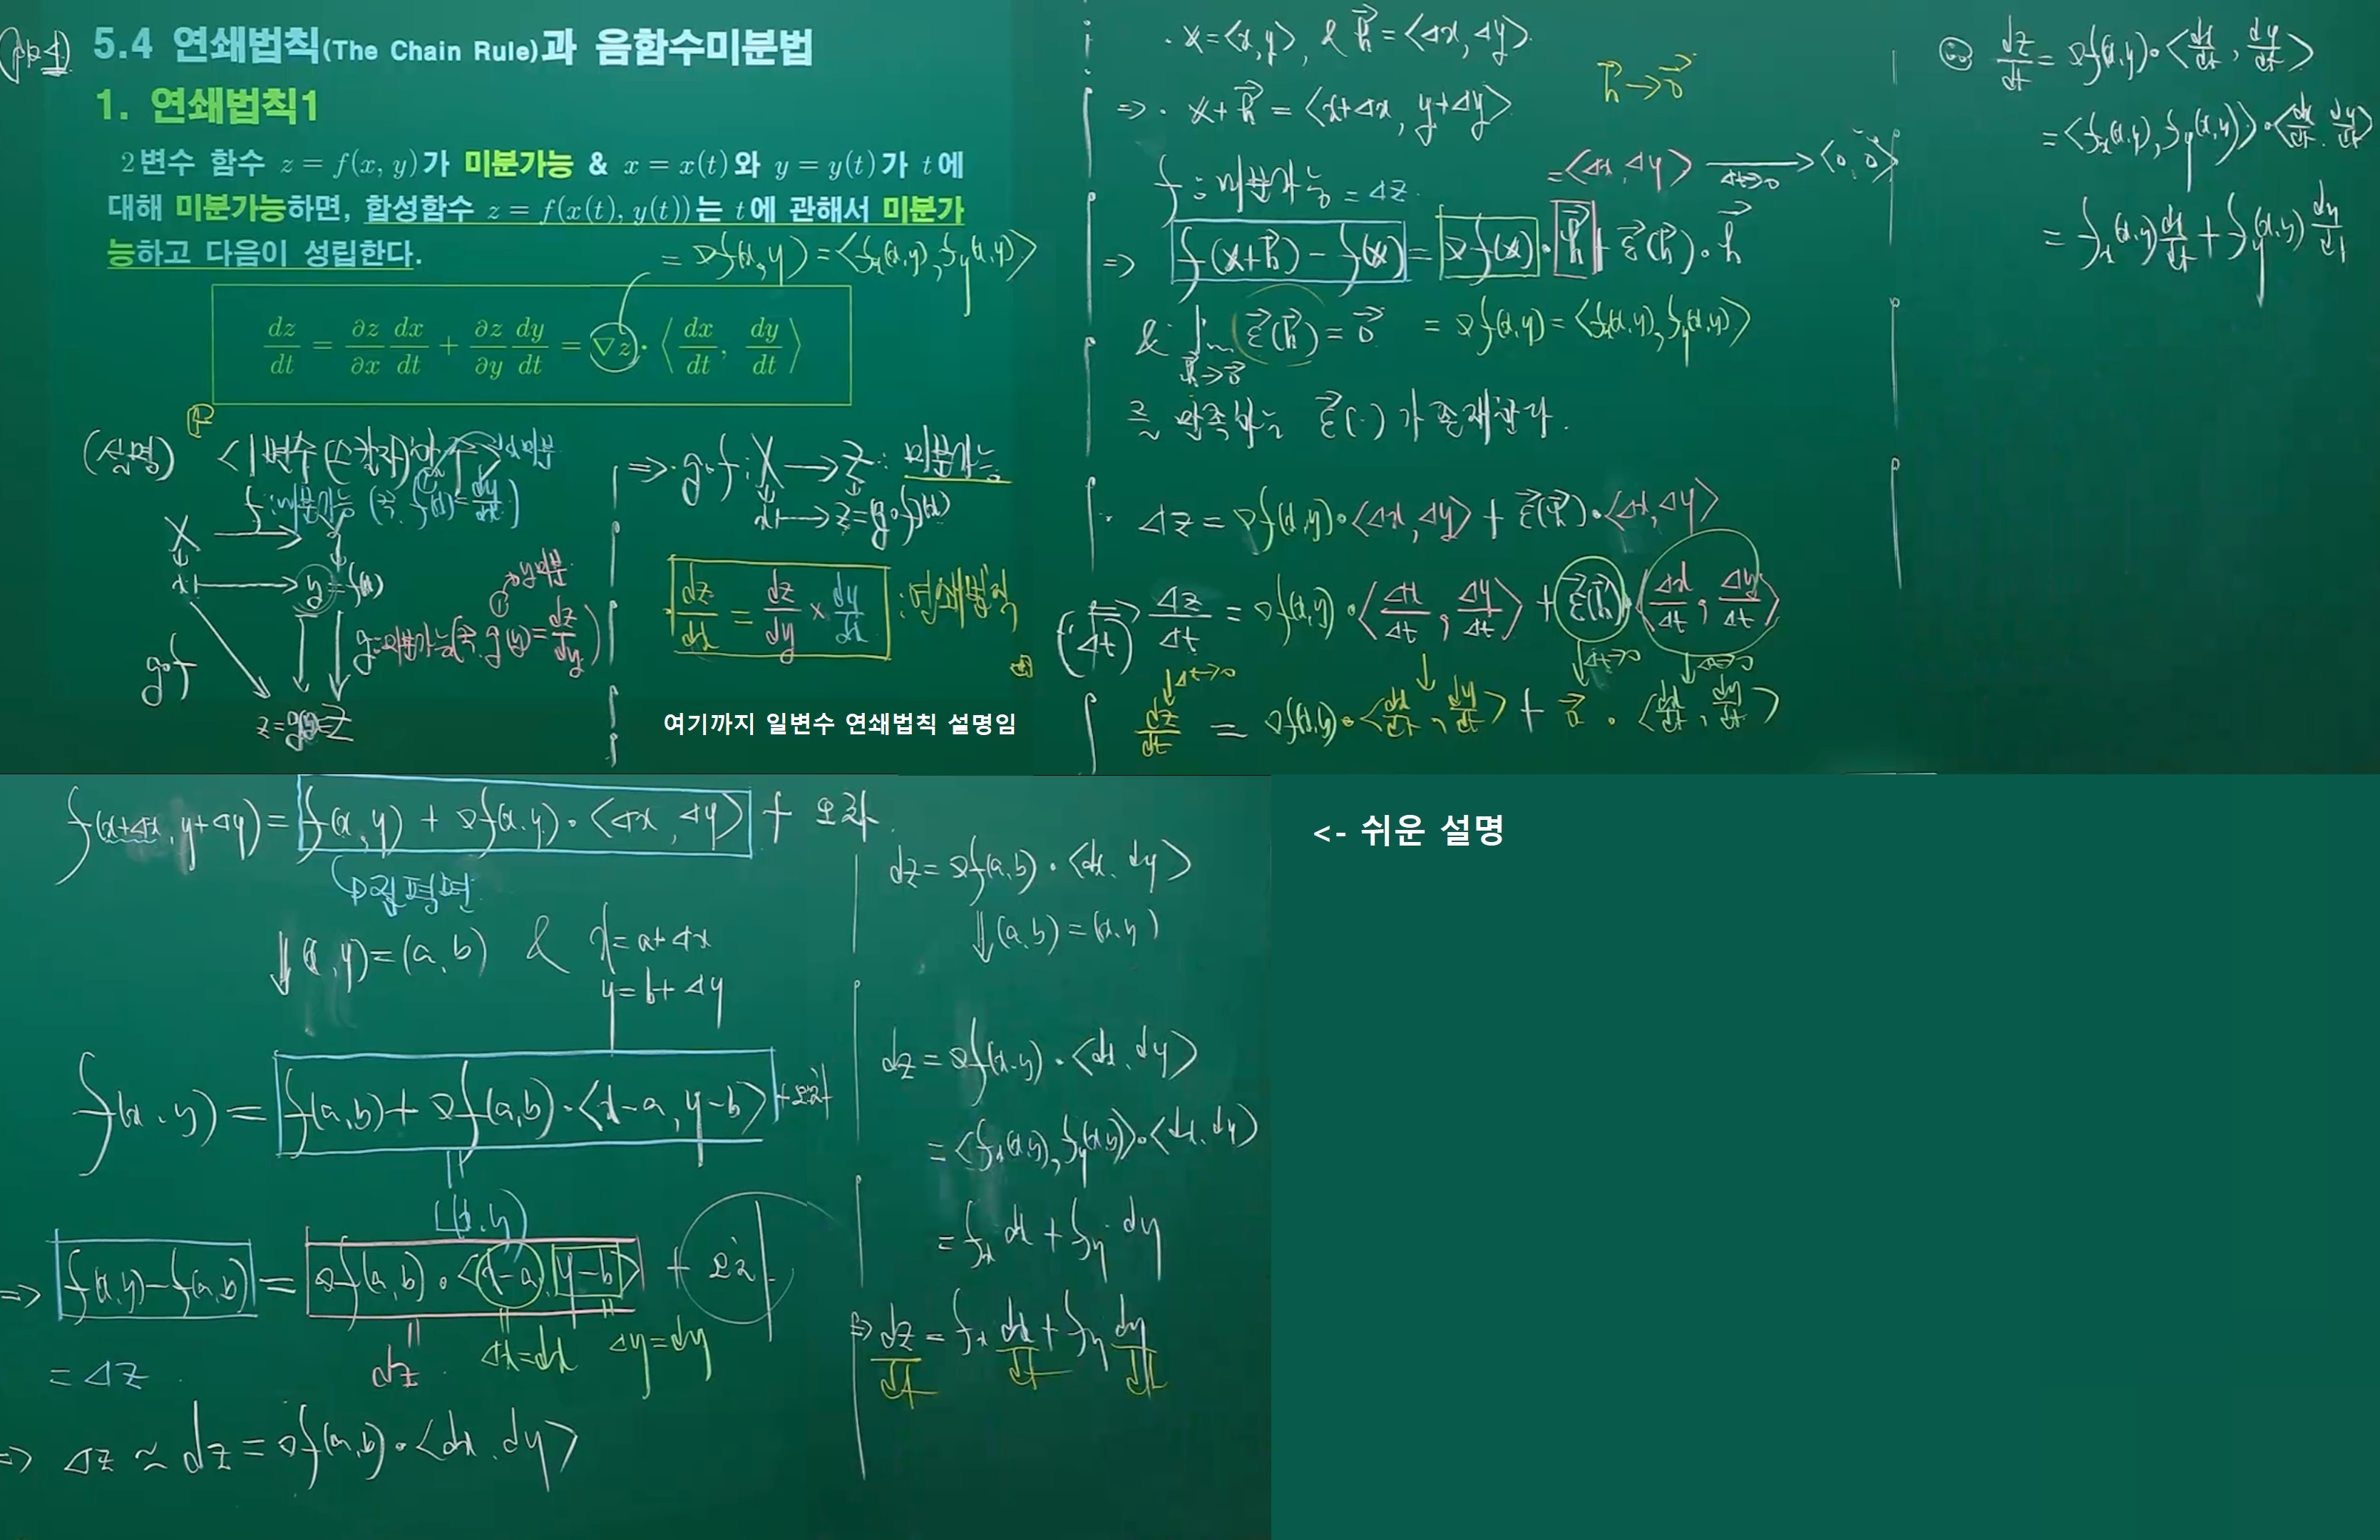 (p124)
5.4 연쇄법칙(The Chain Rule)과 음함수미분법
1. 연쇄법칙1
2변수 함수 z = f(x, y)가 미분가능 & x = x(t)와 y = y(t)가 t에
대해 미분가능하면, 합성함수 z = f(x(t), y(t))는 t에 관해서 미분가
능하고 다음이 성립한다.
= ∇f(x,y) = <f_x(x,y), f_y(x,y)>
dz/dt = ∂z/∂x dx/dt + ∂z/∂y dy/dt = ∇z · ⟨dx/dt, dy/dt⟩
(설명)
f : 미분가능 (즉, f'(x) = dy/dx)
X → Y
x → y = f(x)
y미분
g : 미분가능 (즉, g'(y) = dz/dy)
g∘f
z = g(y) ∈ Z
⇒ g∘f : X → Z : 미분가능
x → z = (g∘f)(x)
dz/dx = dz/dy × dy/dx : 연쇄법칙
여기까지 일변수 연쇄법칙 설명임
· x = <x,y>, & h = <Δx, Δy>
h → 0
⇒ · x + h = <x+Δx, y+Δy>
= <Δx, Δy> → <0, 0>
Δt→0
f : 미분가능 = Δz
⇒ f(x+h) − f(x) = ∇f(x) · h + ε(h) · h
& lim ε(h) = 0 = ∇f(x,y) = <f_x(x,y), f_y(x,y)>
h→0
를 만족하는 ε(·)가 존재한다.
· Δz = ∇f(x,y) · <Δx, Δy> + ε(h) · <Δx, Δy>
⇒ (÷Δt) Δz/Δt = ∇f(x,y) · <Δx/Δt, Δy/Δt> + ε(h) · <Δx/Δt, Δy/Δt>
↓Δt→0 ↓ ↓Δt→0 ↓Δt→0
dz/dt = ∇f(x,y) · <dx/dt, dy/dt> + 0 · <dx/dt, dy/dt>
∴ dz/dt = ∇f(x,y) · <dx/dt, dy/dt>
= <f_x(x,y), f_y(x,y)> · <dx/dt, dy/dt>
= f_x(x,y) dx/dt + f_y(x,y) dy/dt
f(x+Δx, y+Δy) = f(x,y) + ∇f(x,y) · <Δx, Δy> + 오차
접평면
↓ (x,y) = (a,b) & x = a+Δx
y = b+Δy
f(x,y) = f(a,b) + ∇f(a,b) · <x−a, y−b> + 오차
L(x,y)
⇒ f(x,y) − f(a,b) = ∇f(a,b) · <x−a, y−b> + 오차
= Δz dz Δx=dx Δy=dy
⇒ Δz ≈ dz = ∇f(a,b) · <dx, dy>
dz = ∇f(a,b) · <dx, dy>
↓ (a,b) = (x,y)
dz = ∇f(x,y) · <dx, dy>
= <f_x(x,y), f_y(x,y)> · <dx, dy>
= f_x dx + f_y dy
⇒ dz/dt = f_x dx/dt + f_y dy/dt
<- 쉬운 설명